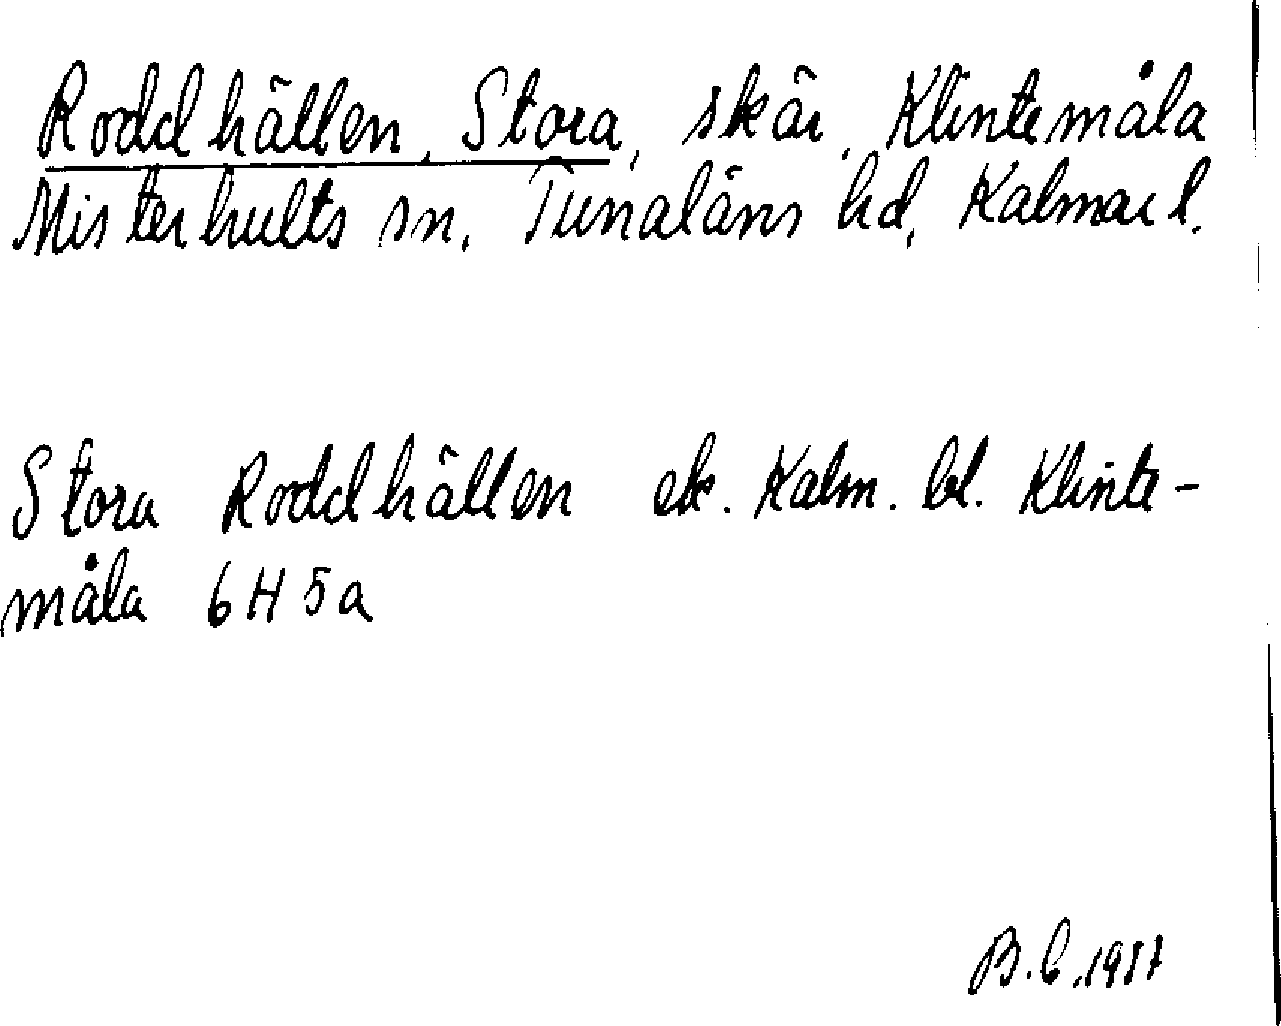 Roddhällen, Stora, skär, Klintemåla
Misterhults sn, Tunaläns hd, Kalmar l.
Stora Roddhällen ek. Kalm. bl. Klinte-
måla 6H 5a
B.C. 1987